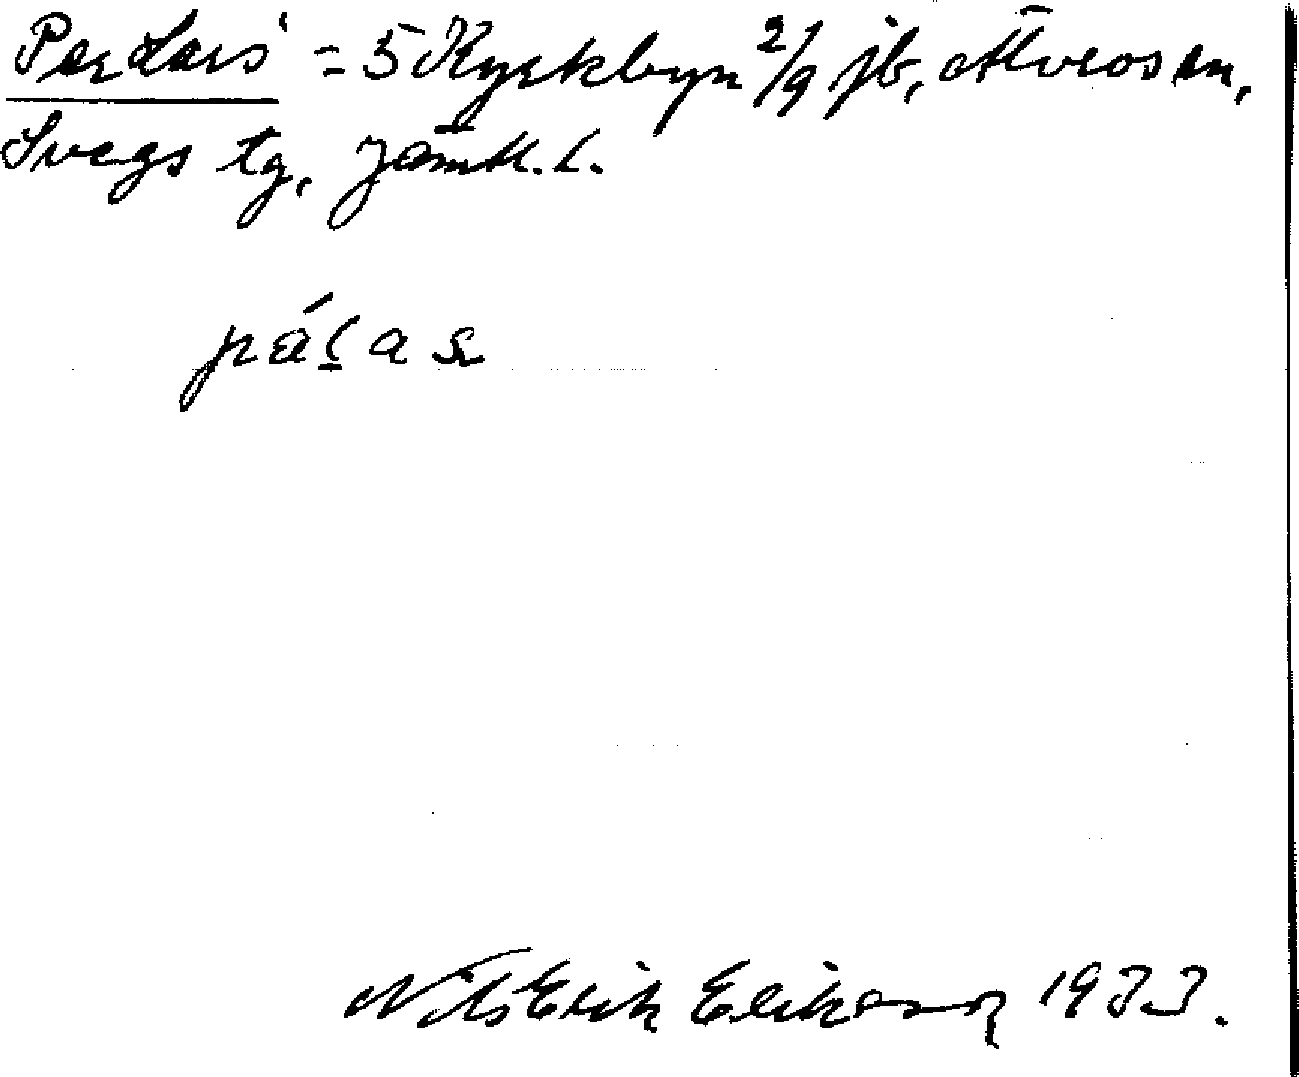 Per Lars' = 5 Kyrkbyn 2/9 jb, Älvros sn,
Svegs tg, Jämtl. l.
páɭas
Nils Erik Erikson 1933.